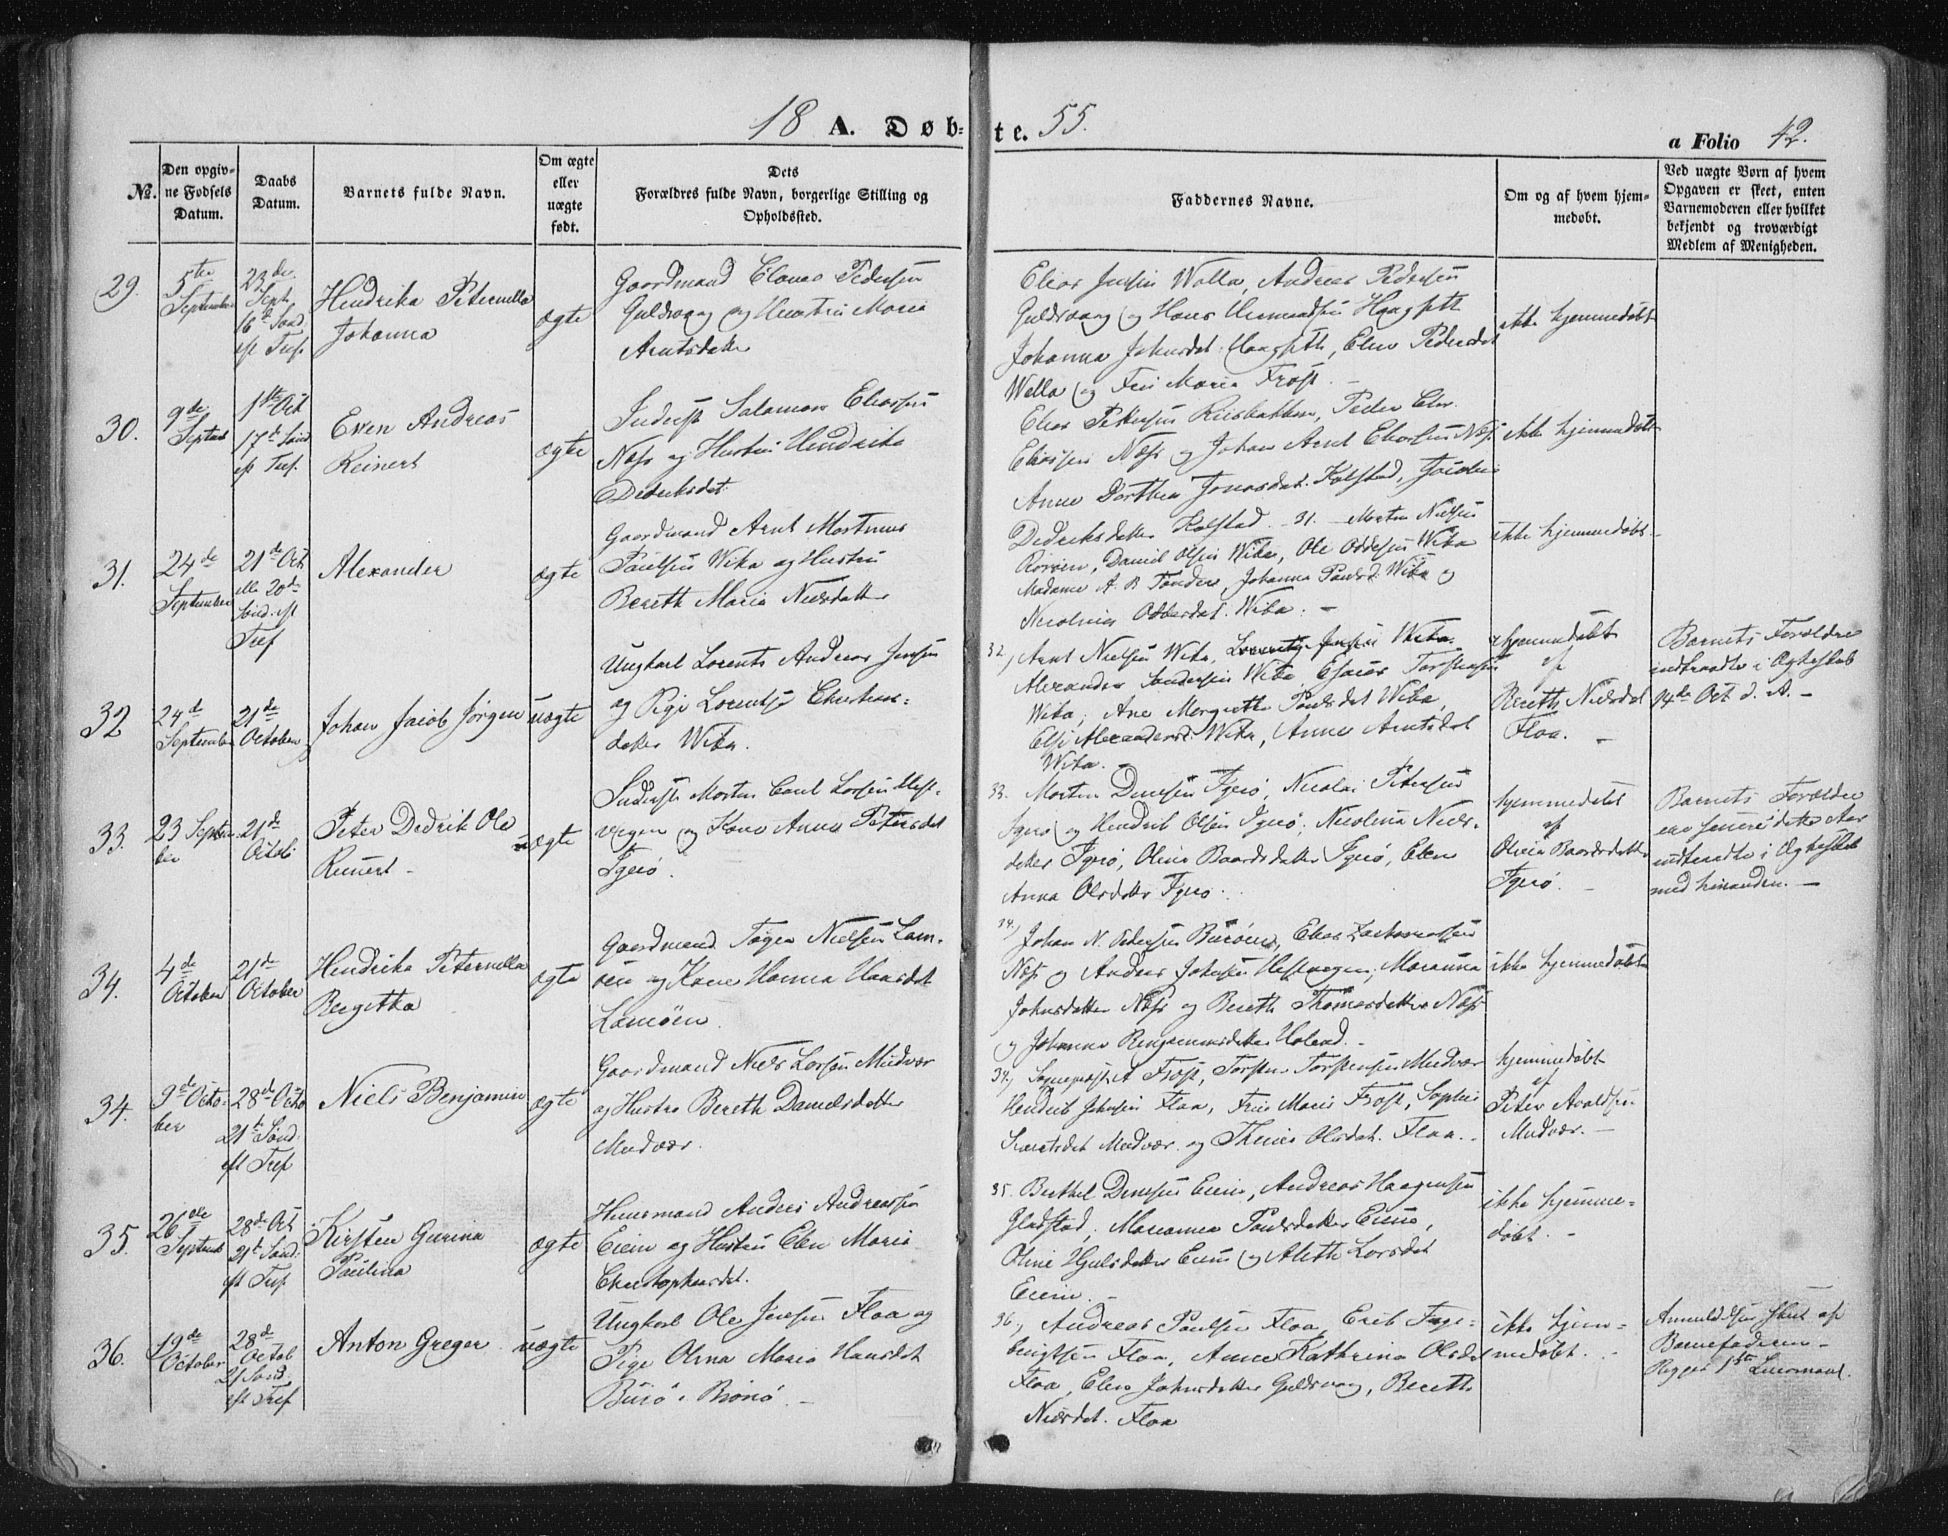 18 A. Døb-
te. 55.
a Folio 42.
No.
Den opgiv-
ne Fødsels
Datum.
Daabs
Datum.
Barnets fulde Navn.
Om ægte
eller
uægte
født.
Dets
Forældres fulde Navn, borgerlige Stilling og
Opholdssted.
Faddernes Navne.
Om og af hvem hjem-
medøbt.
Ved uægte Børn af hvem
Opgaven er skeet, enten
Barnemoderen eller hvilket
bekjendt og troværdigt
Medlem af Menigheden.
29.
5te
September
23de
Sept.
16de Sønd.
eft Tref.
Hendrika Peternella
Johanna
ægte
Gaardmand Pedersen
Guldvaag og Hustru Maria
Arntsdatter
Elias Jensen Wolla, Andreas Pedersen
Guldvaag og Hans
Johanna Johnsdat. Elen Pedersdat
Wolla og Frue Maria Frost.
ikke hjemmedøbt
30.
9de
Septemb
1ste Oct
17de Sønd
eft Tref.
Even Andreas
Reinert
ægte
Inderst Salamon Eliassen
Næss og Hustru Hendrika
Dedriksdat.
Elias Pedersen Riisbakken, Peder
Eliassen Næss og Johan Arnt Eliassen Næss
Anne Dorthea Jonasdat. Kolstad,
Dedriksdatter Kolstad.
ikke hjemmedøbt
31.
24de
September
21de Oct
eller 20de
Sønd. eft
Tref
Alexander
ægte
Gaardmand Arnt Mortinus
Paulsen Wika og Hustru
Bereth Maria Nielsdatter
31. Morten Nielsen
Daniel Olsen Wika, Ole Oddesen Wika
Madame A. B. Tønder, Johanna Paulsd. Wika og
Nicolina Wika.
ikke hjemmedøbt.
32
24de
September
21de
October
Johan Jacob Jørgen
uægte
Ungkarl Lorents Andreas Jensen
og Pige Lorentse Christians-
datter Wika.
32, Arnt Nielsen Wika, Jensen Wika.
Alexander Sandersen Wika, Esaias Torstensen
Wika, Ane Margrethe Paulsdat Wika,
Else Alexandersd. Wika, Anne Arntsdat
Wika.
hjemmedøbt
af
Bereth Nielsdat
Floa.
Barnets Forældre
indtraadte i Ægteskab
14de Oct d. A.
33.
23 Septem
ber
21de
Octob.
Peter Dedrik Ole
Reinert
uægte
Inderst Morten Carl Larsen Hest-
vegen og Kone Anna Petersdat
Igerø.
33. Morten Igerø, Nicolai Petersen
Igerø og Hendrik Olsen Igerø, Nicolina Niels-
datter Igerø, Olina Baardsdatter Igerø, Elen
Anna Olsdatter Igerø.
hjemmedøbt
af
Olina Baardsdatter
Igerø.
Barnets Forældre
ere senere dette Aar
indtraadte i Ægteskab
med hinanden.
34.
4de
October
21de
October
Hendrika Peternella
Bergitha
ægte
Gaardmand Tøger Nielsen Lam-
øen og Kone Hanna Hansdat
Lamøen.
34, Johan N. Pedersen Burøen, Elias Zachariassen
Næss og Andreas Johnsen Hestvegen, Marianna
Johnsdatter Næss og Bereth Thomasdatter Næss
og Johanna
ikke hjemmedøbt
34.
9de Octo-
ber
28de Octo
21de Sønd.
eft Tref
Niels Benjamin
ægte
Gaardmand Niels Larsen Mudvær
og Hustru Bereth Danielsdatter
Mudvær.
34, Sogneprest A Frost, Torsten Torstensen Mudvær
Hendrik Johnsen Floa, Frue Maria Frost, Sophie
Mudvær og Olsdat. Floa.
hjemmedøbt
af
Peter
Mudvær.
35.
26de
Septemb
28de Oct
21de Sønd.
eft Tref.
Kirsten Gurina
Paulina
ægte
Huusmand Anders Andreassen
Eiein og Hustru Elen Maria
Christophersdat.
35. Berthel Eiein, Andreas Haagensen
Gladstad, Marianna Paulsdatter Eiein,
Oline Eiein og Aleth Larsdat
Eiein.
ikke hjemme-
døbt.
36.
19de
October
28de
Octob
21 Sønd.
eft Tref
Anton Greger
uægte
Ungkarl Ole Jensen Floa og
Pige Olina Maria Hansdat
Burø i Brønø.
36, Andreas Paulsen Floa, Erik Inge-
brigtsen Floa, Anne Kathrina Olsdat
Floa, Elen Johnsdatter Guldvaag, Bereth
Nielsdat. Floa
ikke hjem-
medøbt.
Anmeldelsen skeet af
Barnefaderen